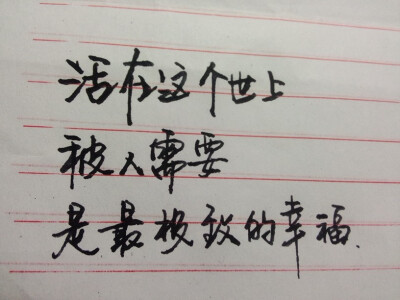 活在这个世上
被人需要
是最极致的幸福.